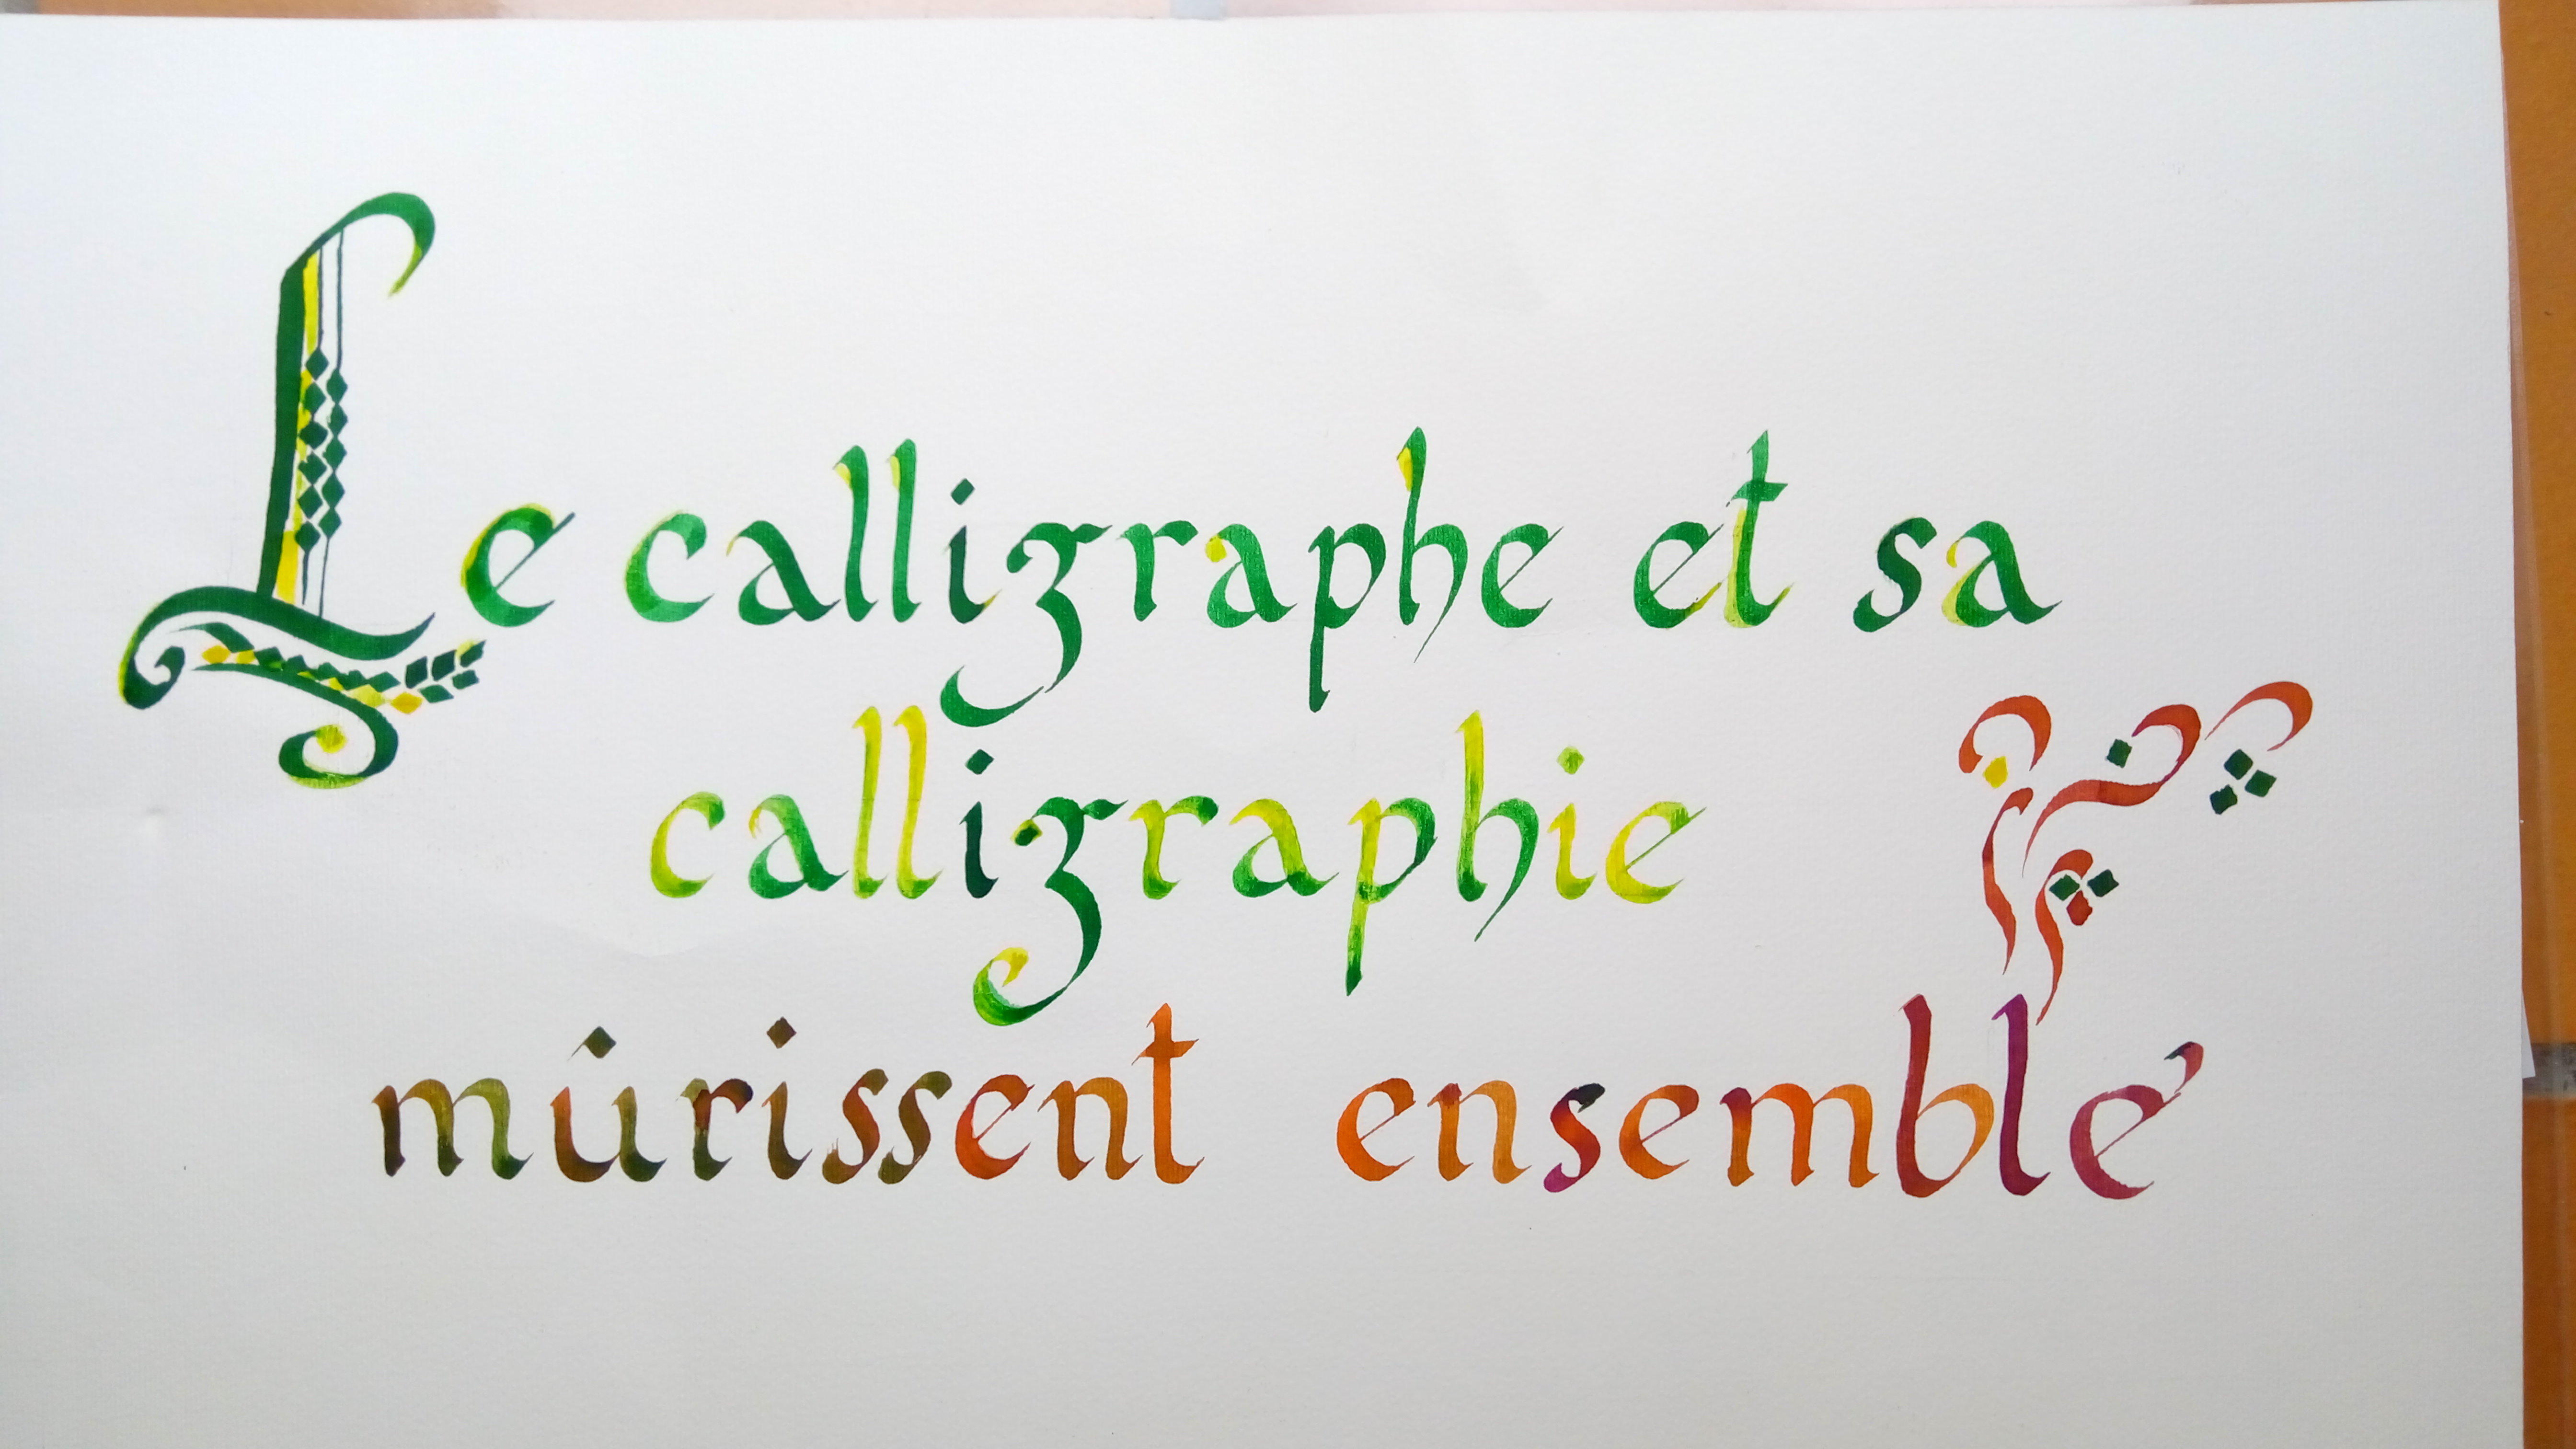 Le calligraphe et sa
calligraphie
mûrissent ensemble